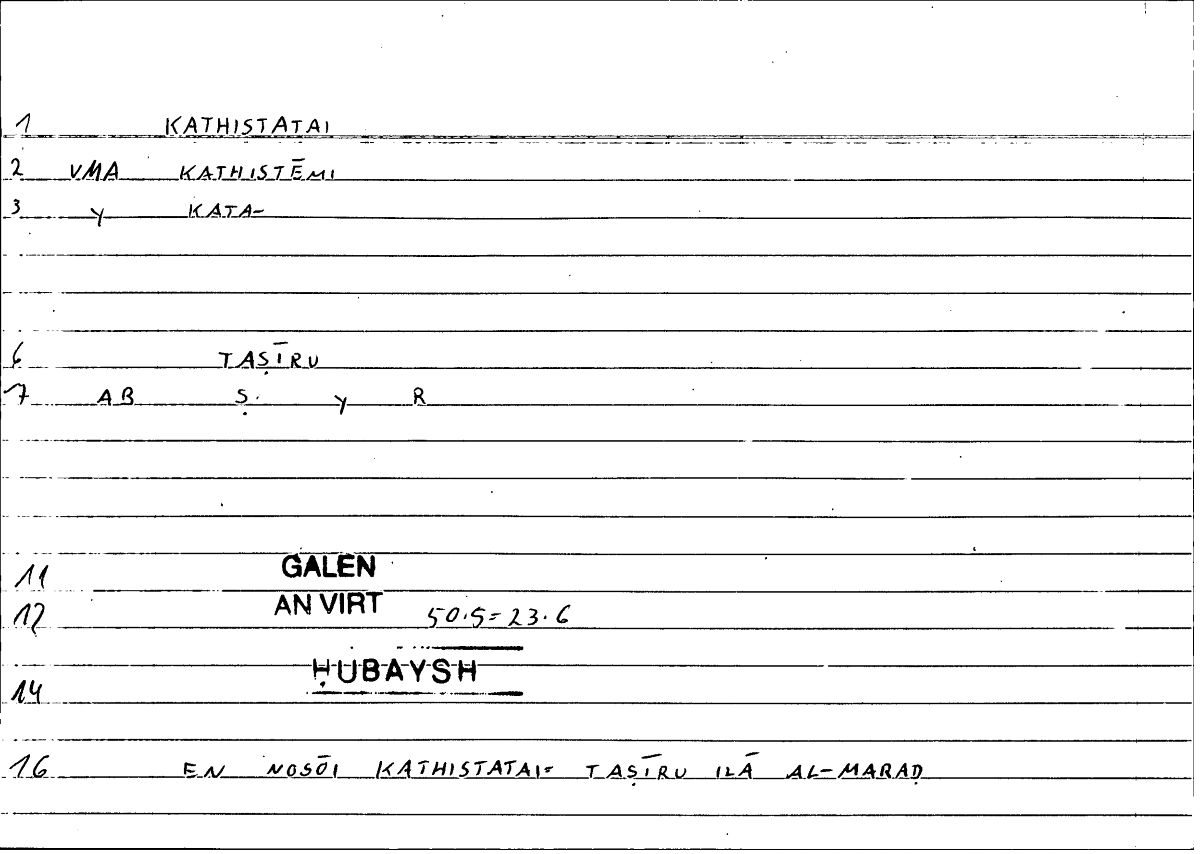 1 KATHISTATAI
2 VMA KATHISTĒMI
3 Y KATA-
6 TAṢĪRU
7 AB Ṣ Y R
11 GALEN
12 AN VIRT 50.5=23.6
ḤUBAYSH
14
16 EN NOSŌI KATHISTATAI= TAṢĪRU ILĀ AL-MARAḌ